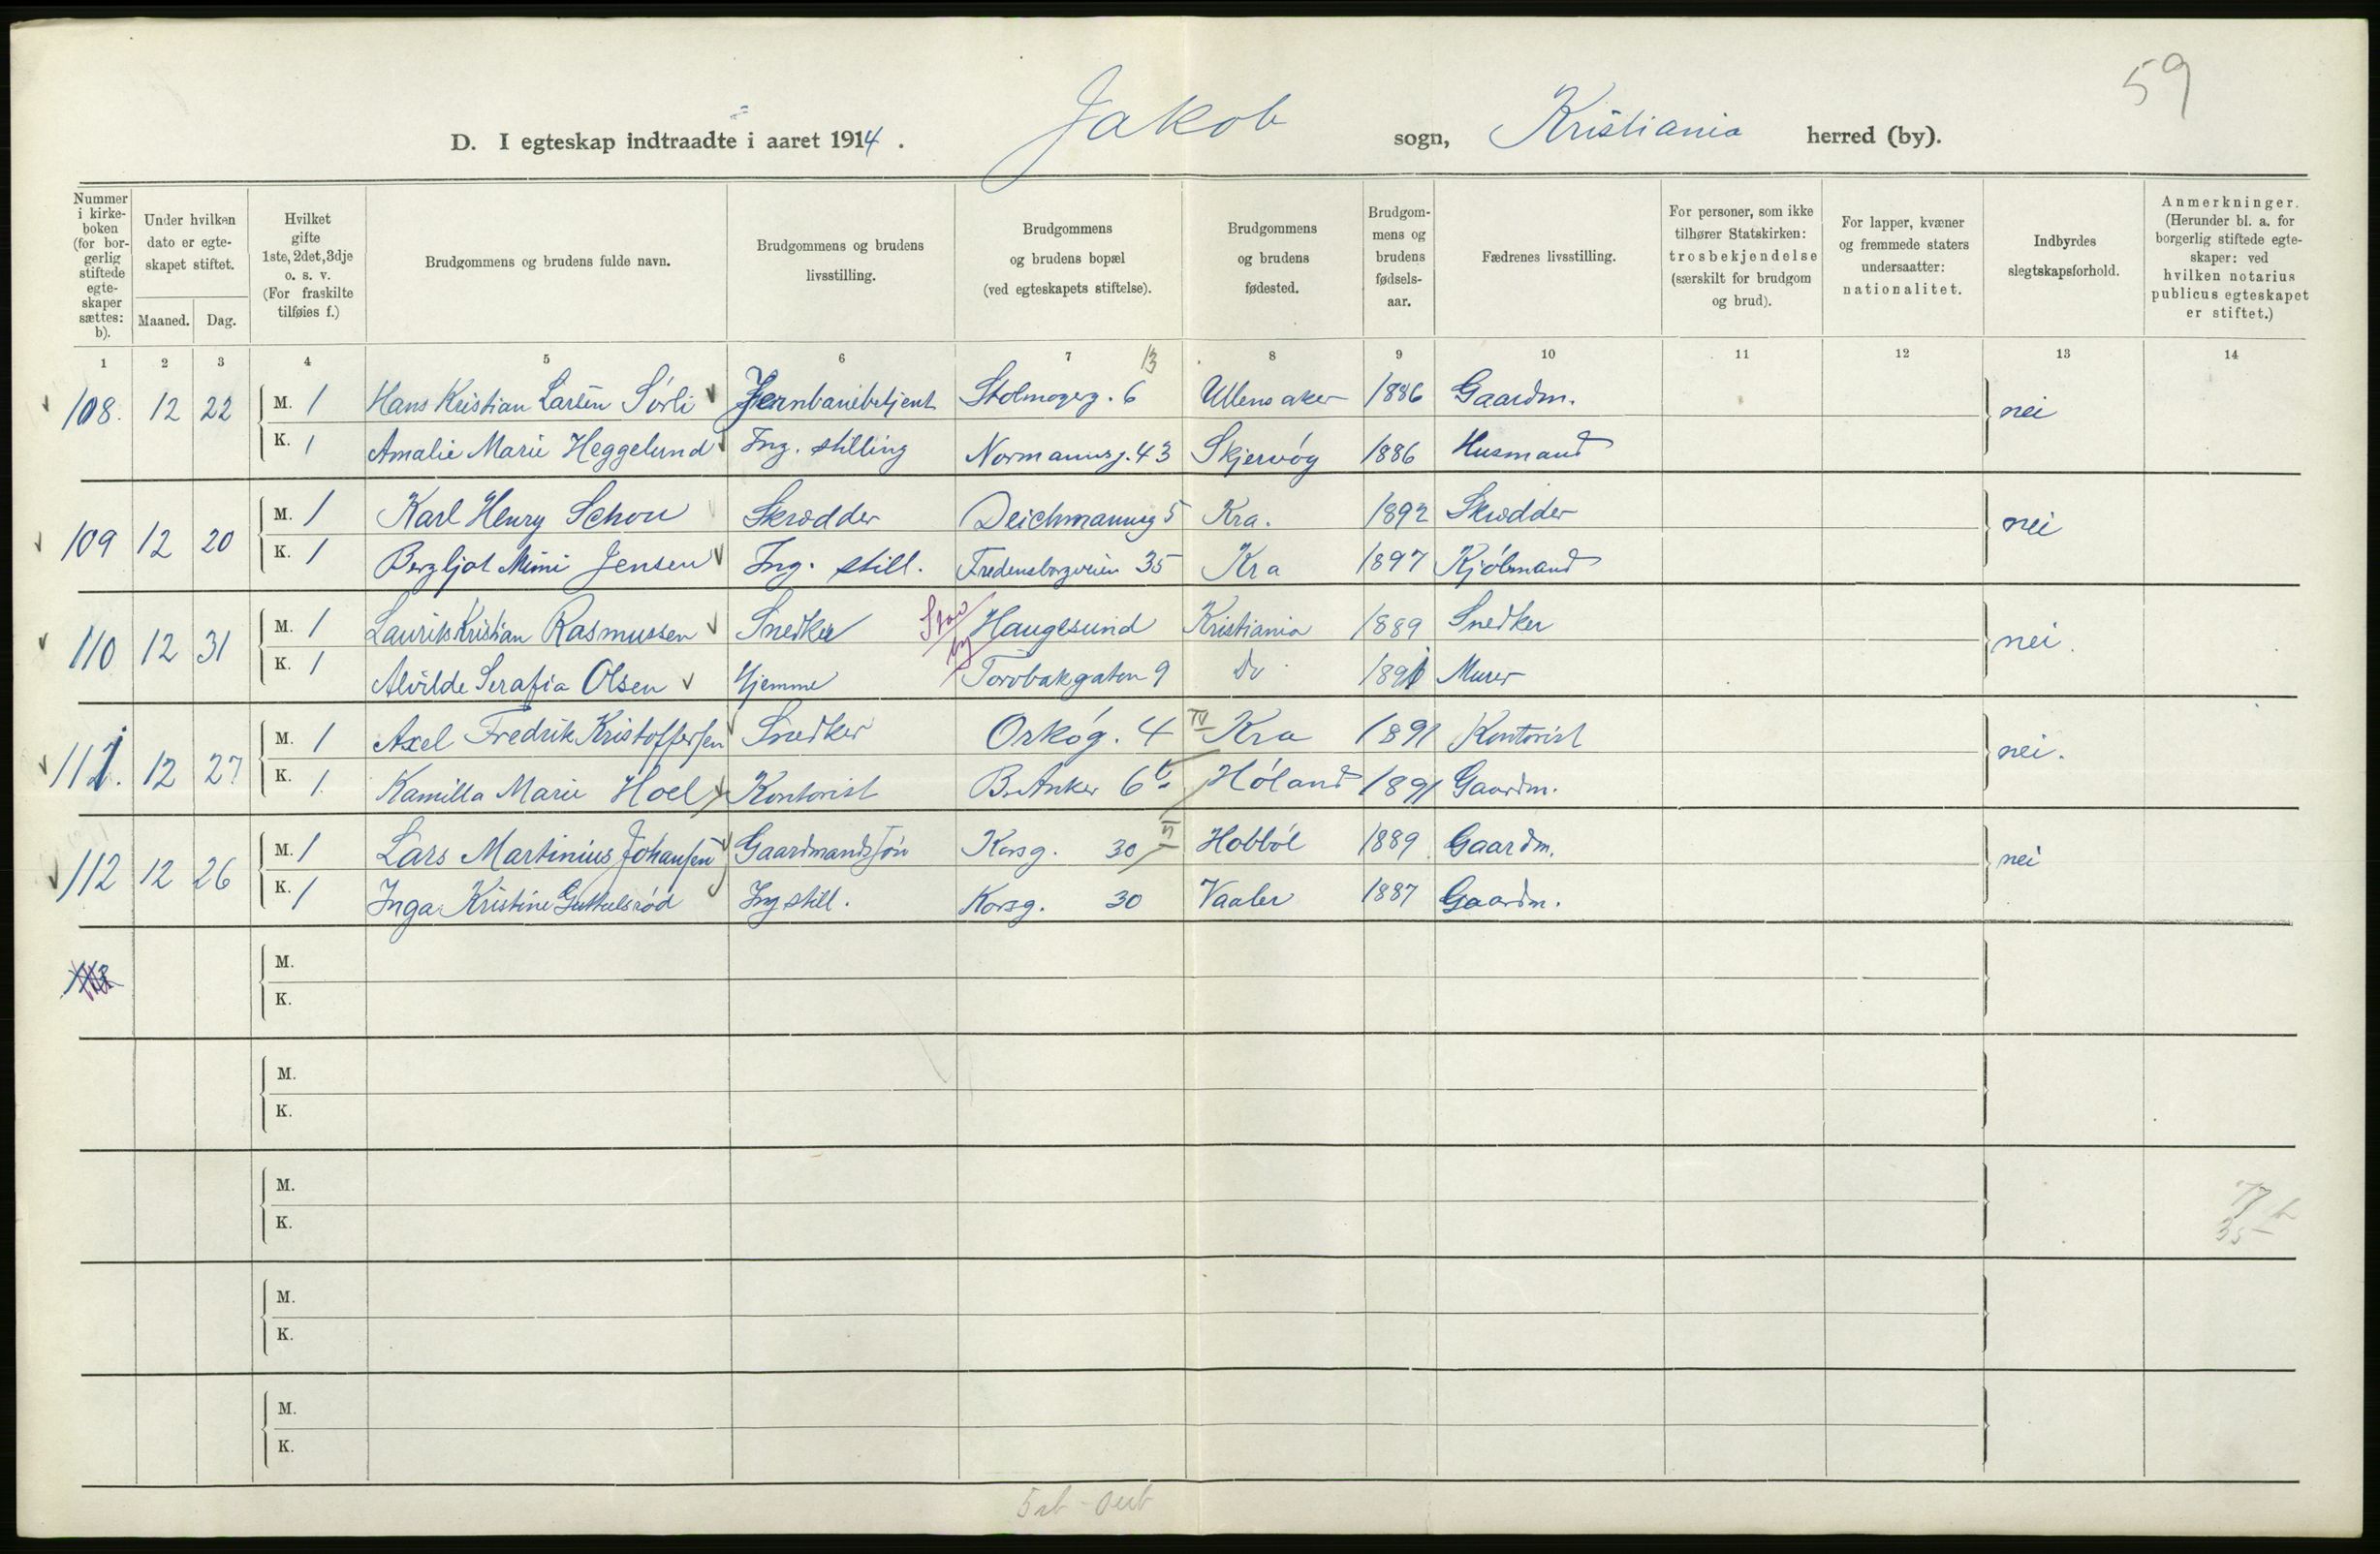 59
D. I egteskap indtraadte i aaret 1914. Jakob sogn, Kristiania herred (by).
Nummer i kirke-boken (for bor-gerlig stiftede egte-skaper sættes: b).
Under hvilken dato er egte-skapet stiftet.
Maaned. Dag.
Hvilket gifte 1ste, 2det, 3dje o. s. v. (For fraskilte tilføies f.)
Brudgommens og brudens fulde navn.
Brudgommens og brudens livsstilling.
Brudgommens og brudens bopæl (ved egteskapets stiftelse).
Brudgommens og brudens fødested.
Brudgom-mens og brudens fødsels-aar.
Fædrenes livsstilling.
For personer, som ikke tilhører Statskirken: trosbekjendelse (særskilt for brudgom og brud).
For lapper, kvæner og fremmede staters undersaatter: nationalitet.
Indbyrdes slegtskapsforhold.
Anmerkninger. (Herunder bl. a. for borgerlig stiftede egte-skaper: ved hvilken notarius publicus egteskapet er stiftet.)
1 2 3 4 5 6 7 8 9 10 11 12 13 14
13
108. 12 22 M. 1 Hans Kristian Larsen Sørli Jernbanebetjent Stolmagerg. 6 Ullensaker 1886 Gaardm. nei
K. 1 Amalie Marie Heggelund Ing. stilling Normannsg. 43 Skjervøy 1886 Husmand
109 12 20 M. 1 Karl Henry Schou Skrædder Deichmannsg 5 Kra. 1892 Skrædder nei
K. 1 Bergljot Mimi Jensen Ing. still. Fredensborgveien 35 Kra 1897 Kjøbmand
110 12 31 M. 1 Laurits Kristian Rasmussen Snedker Haugesund Kristiania 1889 Snedker nei.
K. 1 Alvilde Serafia Olsen Hjemme Torvbakgaten 9 Do 1891 Murer
111. 12 27 M. 1 Axel Fredrik Kristoffersen Snedker Orkøg. 4 IV Kra 1891 Kontorist nei.
K. 1. Kamilla Marie Hoel Kontorist B. Anker 6 b Høland 1891 Gaardm.
112 12 26 M. 1 Lars Martinius Johansen Gaardmandssøn Korsg. 30 Hobbøl 1889 Gaardm. nei
K. 1 Inga Kristine Guttulsrød Ing still. Korsg. 30 Vaaler 1887 Gaardm.
M.
K.
M.
K.
M.
K.
M.
K.
M.
K.